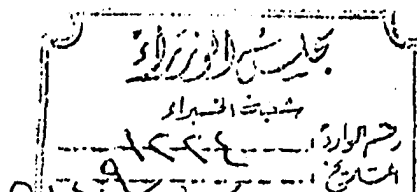 مجلس الوزراء
شعبة الخبراء
رقم الوارد: ١٢٢٤
التاريخ: